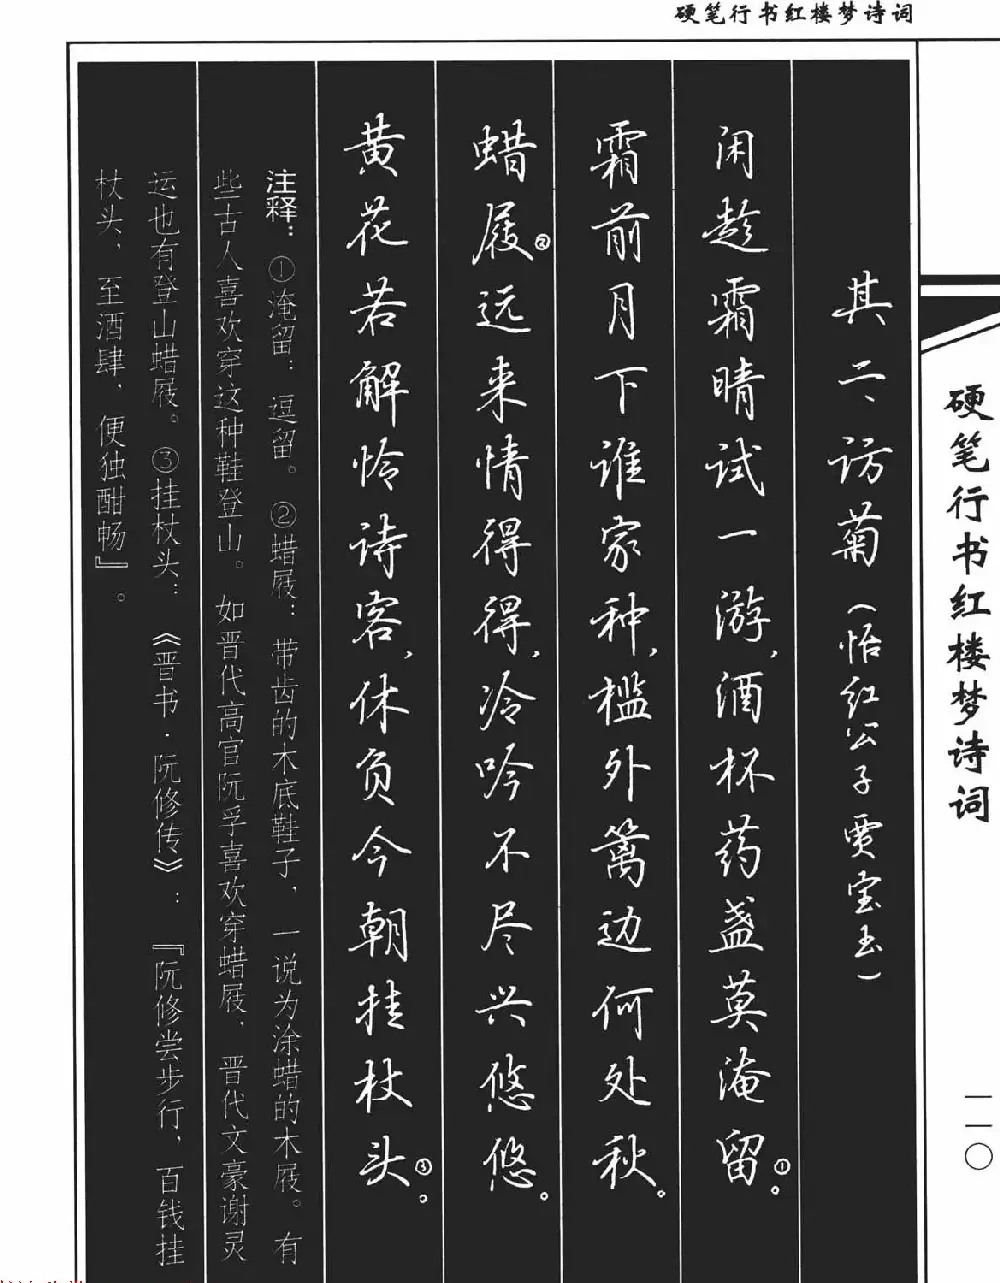 硬笔行书红楼梦诗词
硬笔行书红楼梦诗词
一一〇
其二、访菊（怡红公子贾宝玉）
闲趁霜晴试一游，酒杯药盏莫淹留①。
霜前月下谁家种，槛外篱边何处秋。
蜡屐②远来情得得，冷吟不尽兴悠悠。
黄花若解怜诗客，休负今朝挂杖头③。
注释：①淹留：逗留。②蜡屐：带齿的木底鞋子，一说为涂蜡的木屐。有
些古人喜欢穿这种鞋登山。如晋代高官阮孚喜欢穿蜡屐，晋代文豪谢灵
运也有登山蜡屐。③挂杖头：《晋书·阮修传》：『阮修尝步行，百钱挂
杖头，至酒肆，便独酣畅』。